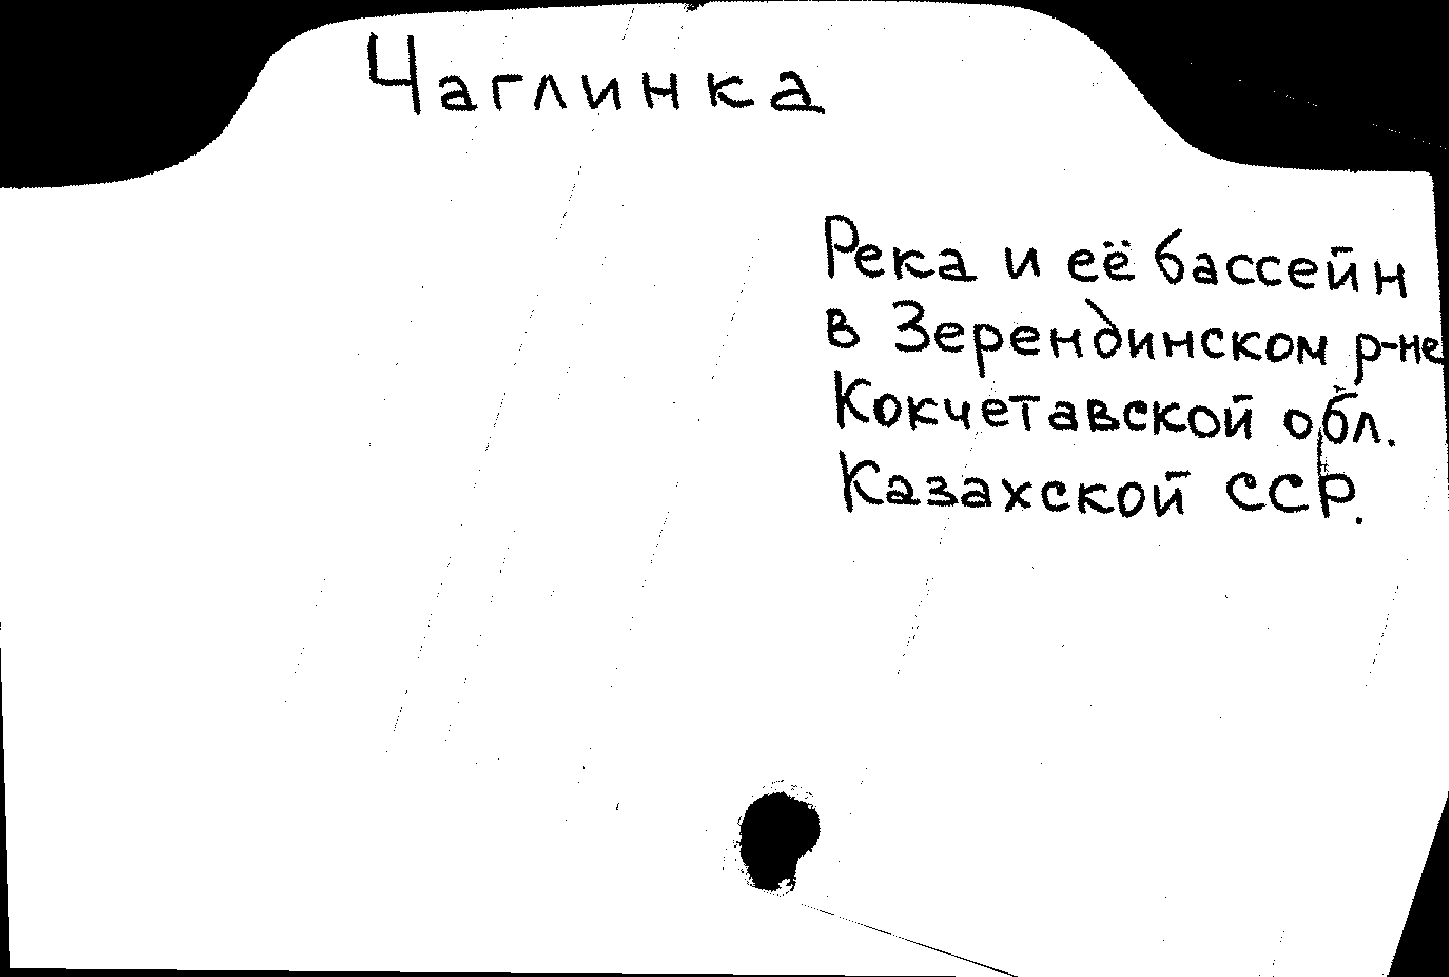 Чаглинка
Река и её бассейн
в Зерендинском р-не
Кокчетавской обл.
Казахской ССР.